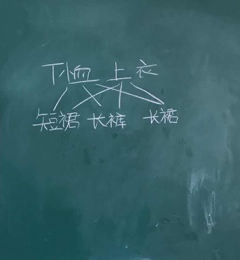 T恤 上衣
短裙 长裤 长裙